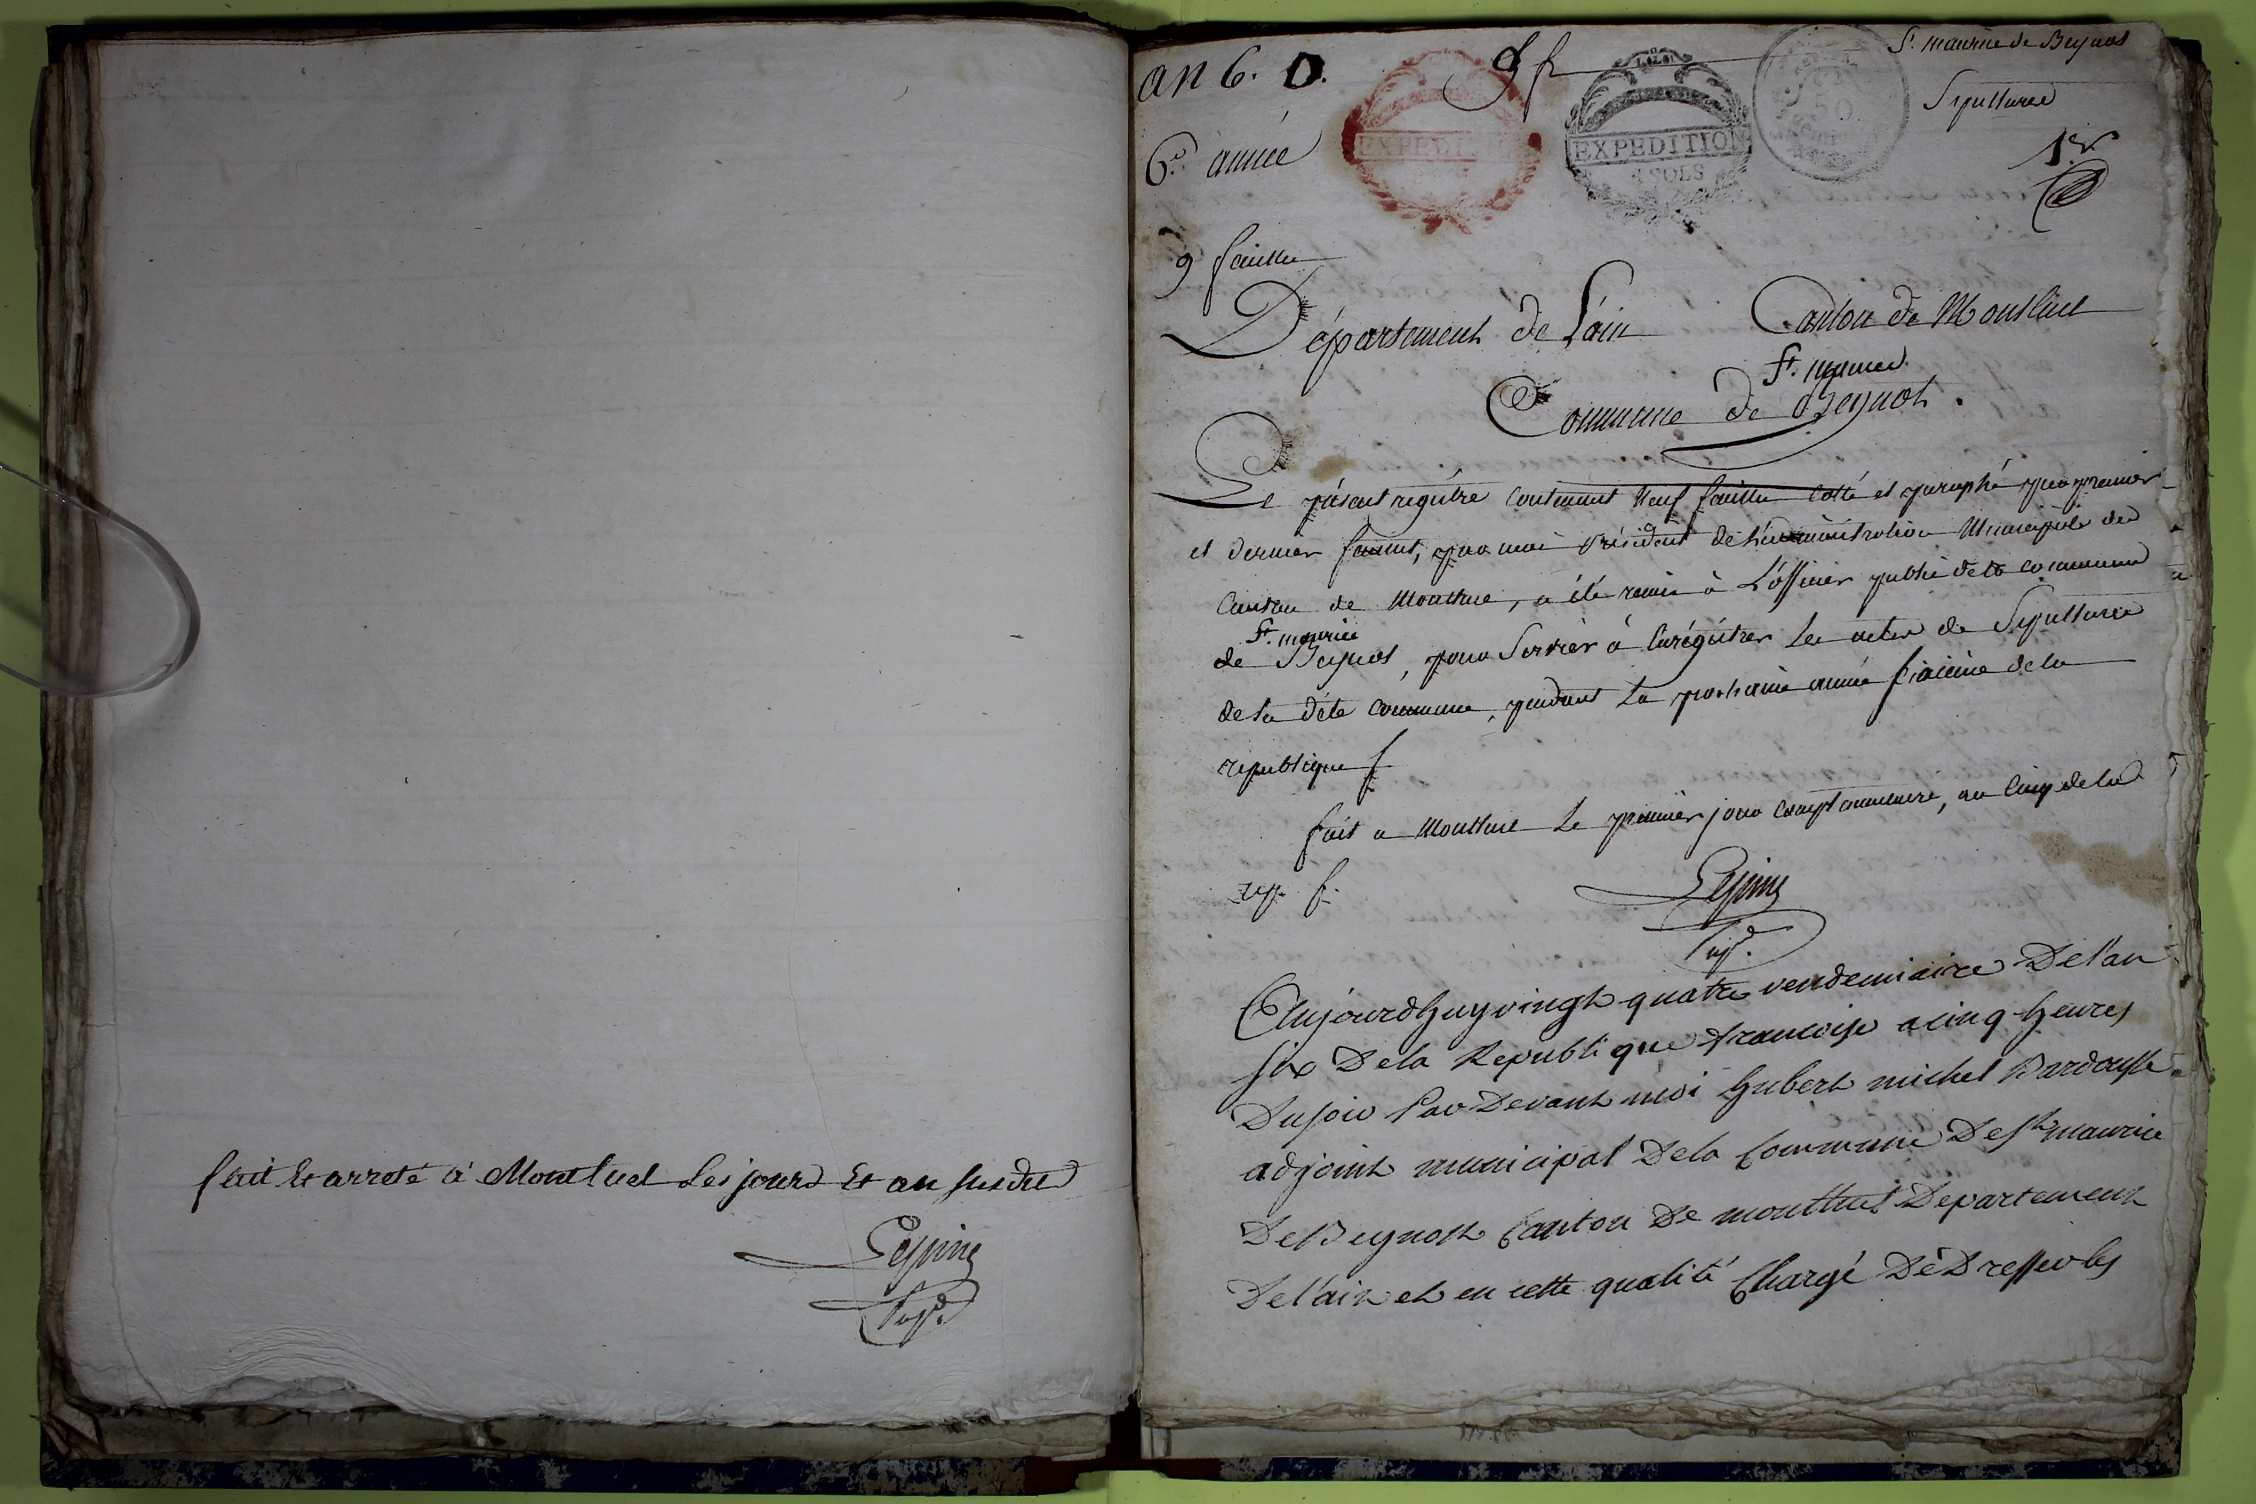 fait et arreté à Montluel les jours et an susdit
Lespine
an 6. D. 9 f
St. maurice de Beynos
Sepultures
6e. année
EXPEDITION
EXPEDITION
4 SOLS
50
1er
9 feuilles
Département de L'ain Canton de Montluel
St. maurice
Commune de Beynost.
Le présent regitre contenant neuf feuilles cotté et paraphé par premier
et dernier feuillet, par moi Président de L'administration Municipale du
Canton de Montluel, a été remis à L'officier public de la commune
St. maurice
de Beynost, pour servir à Enrégitrer les actes de Sepultures
de la dite commune, pendant la prochaine année sixième de la
republique f
fait a Montluel le premier jour complementaire, an cinq de la
rep. f.
Lespine
Aujourdhuy vingt quatre vendemiaire De l'an
six De la Republique francoise a cinq heures
Du soir Par Devant moi hubert michel
adjoint municipal De la Commune De St maurice
De Beynost Canton De montluel Departement
De l'ain et en cette qualité Chargé De Dresser les